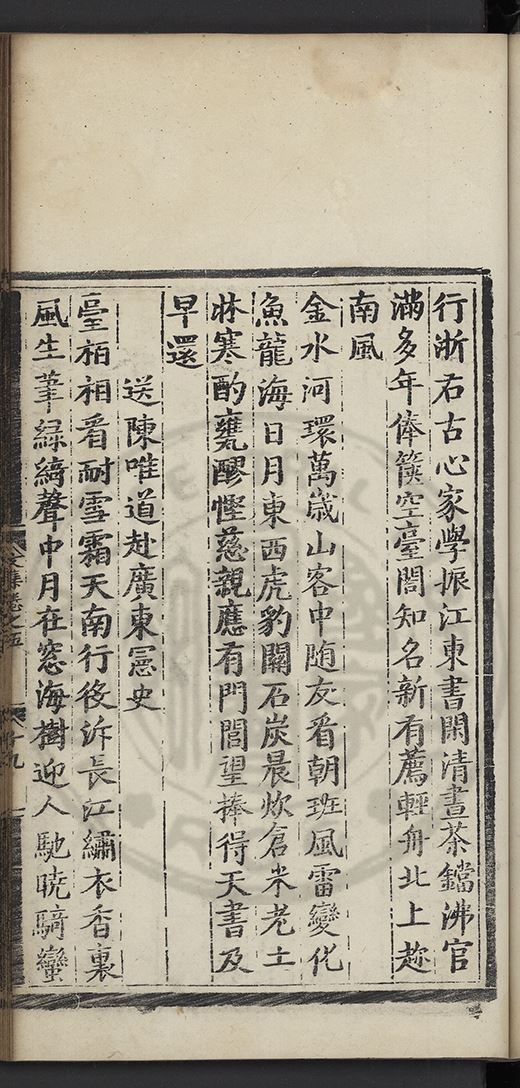 行浙右古心家學振江東書閑清晝茶鐺沸官
滿多年俸篋空臺閣知名新有薦輕舟北上趂
南風
金水河環萬歲山客中随友看朝班風雷變化
魚龍海日月東西虎豹關石炭晨炊倉米老土
牀寒酌甕醪慳慈親應有門閭望捧得天書及
早還
送陳唯道赴廣東憲史
臺栢相看耐雪霜天南行役泝長江繡衣香裏
風生筆綠綺聲中月在窓海樹迎人馳曉騎蠻